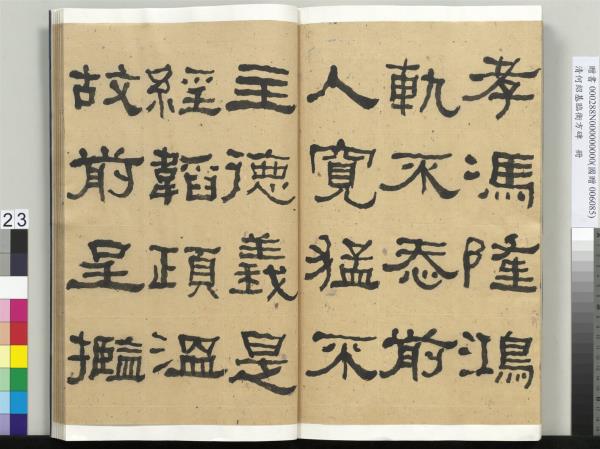 孝馮隆鴻
軌不忝前
人寬猛不
主德義是
經韜溫
故前呈㩜
贈書 000288N000000000(國贈 006085)
清何紹基臨衡方碑 冊
23